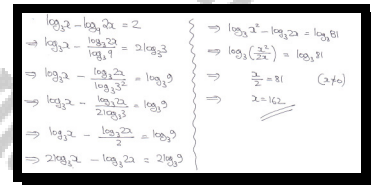 log₃x - log₉2x = 2
⇒ log₃x - log₃2x / log₃9 = 2log₃3
⇒ log₃x - log₃2x / log₃3² = log₃9
⇒ log₃x - log₃2x / 2log₃3 = log₃9
⇒ log₃x - log₃2x / 2 = log₃9
⇒ 2log₃x - log₃2x = 2log₃9
⇒ log₃x² - log₃2x = log₃81
⇒ log₃(x²/2x) = log₃81
⇒ x/2 = 81 (x≠0)
⇒ x = 162